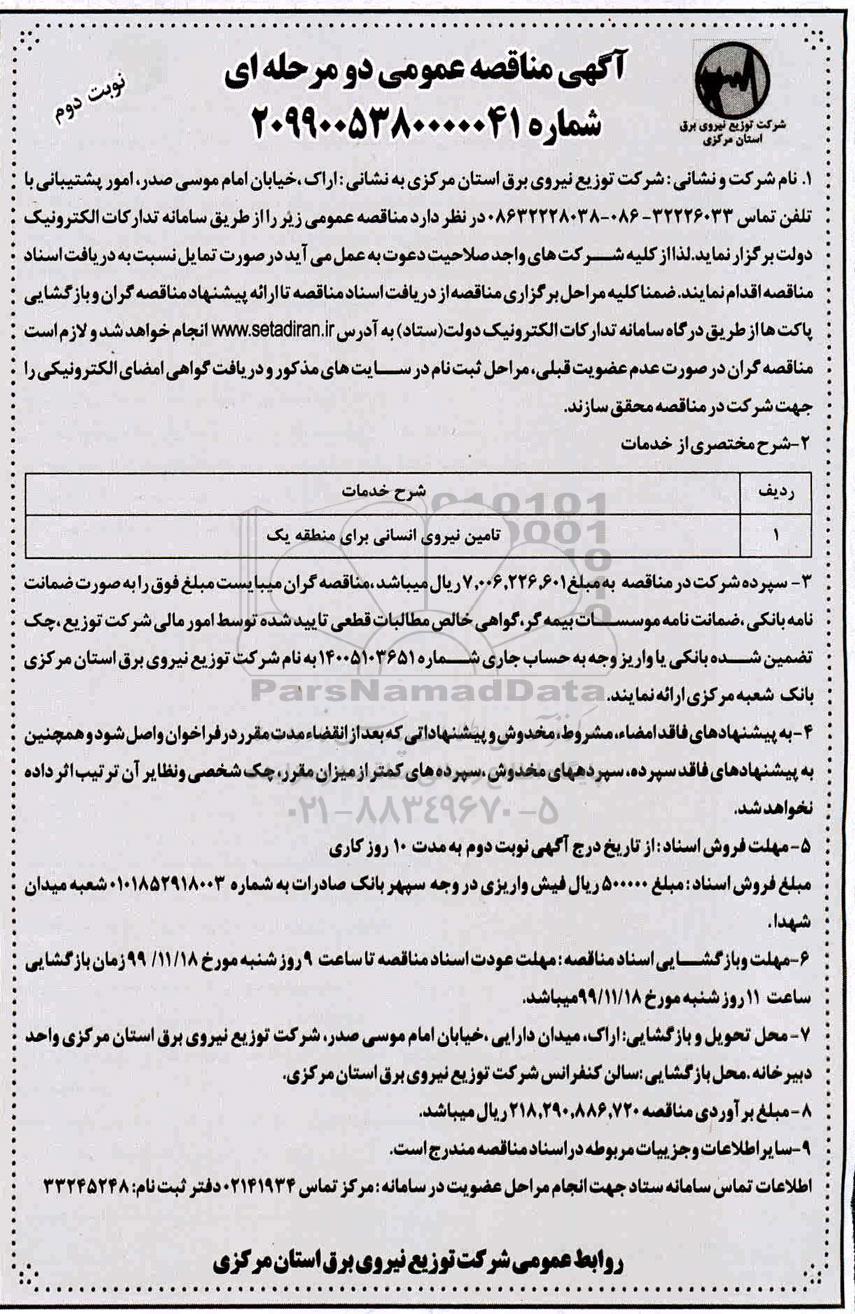 آگهی مناقصه عمومی دو مرحله ای
شماره ۲۰۹۹۰۰۵۳۸۰۰۰۰۰۴۱
نوبت دوم
شرکت توزیع نیروی برق
استان مرکزی
۱. نام شرکت و نشانی : شرکت توزیع نیروی برق استان مرکزی به نشانی : اراک ،خیابان امام موسی صدر، امور پشتیبانی با
تلفن تماس ۳۲۲۲۶۰۳۳- ۰۸۶-۰۸۶۳۲۲۲۸۰۳۸ در نظر دارد مناقصه عمومی زیر را از طریق سامانه تدارکات الکترونیک
دولت برگزار نماید.لذا از کلیه شرکت های واجد صلاحیت دعوت به عمل می آید در صورت تمایل نسبت به دریافت اسناد
مناقصه اقدام نمایند. ضمنا کلیه مراحل برگزاری مناقصه از دریافت اسناد مناقصه تا ارائه پیشنهاد مناقصه گران و بازگشایی
پاکت ها از طریق درگاه سامانه تدارکات الکترونیک دولت(ستاد) به آدرس www.setadiran.ir انجام خواهد شد و لازم است
مناقصه گران در صورت عدم عضویت قبلی، مراحل ثبت نام در سایت های مذکور و دریافت گواهی امضای الکترونیکی را
جهت شرکت در مناقصه محقق سازند.
۲-شرح مختصری از خدمات
ردیف شرح خدمات
۱ تامین نیروی انسانی برای منطقه یک
۳- سپرده شرکت در مناقصه به مبلغ ۷,۰۰۶,۲۲۶,۶۰۱ ریال میباشد ،مناقصه گران میبایست مبلغ فوق را به صورت ضمانت
نامه بانکی ،ضمانت نامه موسسات بیمه گر،گواهی خالص مطالبات قطعی تایید شده توسط امور مالی شرکت توزیع ،چک
تضمین شده بانکی یا واریز وجه به حساب جاری شماره ۱۴۰۰۵۱۰۳۶۵۱ به نام شرکت توزیع نیروی برق استان مرکزی
بانک شعبه مرکزی ارائه نمایند.
ParsNamadData
۴-به پیشنهادهای فاقد امضاء، مشروط، مخدوش و پیشنهاداتی که بعد از انقضاء مدت مقرر در فراخوان واصل شود و همچنین
به پیشنهادهای فاقد سپرده، سپردههای مخدوش ،سپرده های کمتر از میزان مقرر، چک شخصی ونظایر آن ترتیب اثر داده
نخواهد شد.
۰۲۱-۸۸۳۴۹۶۷۰-۵
۵-مهلت فروش اسناد : از تاریخ درج آگهی نوبت دوم به مدت ۱۰ روز کاری
مبلغ فروش اسناد : مبلغ ۵۰۰۰۰۰ ریال فیش واریزی در وجه سپهر بانک صادرات به شماره ۰۱۰۱۸۵۲۹۱۸۰۰۳ شعبه میدان
شهدا.
۶-مهلت وبازگشایی اسناد مناقصه : مهلت عودت اسناد مناقصه تا ساعت ۹ روز شنبه مورخ ۹۹/۱۱/۱۸ زمان بازگشایی
ساعت ۱۱ روز شنبه مورخ ۹۹/۱۱/۱۸ میباشد.
۷- محل تحویل و بازگشایی: اراک، میدان دارایی ،خیابان امام موسی صدر، شرکت توزیع نیروی برق استان مرکزی واحد
دبیرخانه .محل بازگشایی :سالن کنفرانس شرکت توزیع نیروی برق استان مرکزی.
۸-مبلغ برآوردی مناقصه ۲۱۸,۲۹۰,۸۸۶,۷۲۰ ریال میباشد.
۹-سایر اطلاعات و جزییات مربوطه در اسناد مناقصه مندرج است.
اطلاعات تماس سامانه ستاد جهت انجام مراحل عضویت در سامانه : مرکز تماس ۰۲۱۴۱۹۳۴ دفتر ثبت نام: ۳۳۲۴۵۲۴۸
روابط عمومی شرکت توزیع نیروی برق استان مرکزی